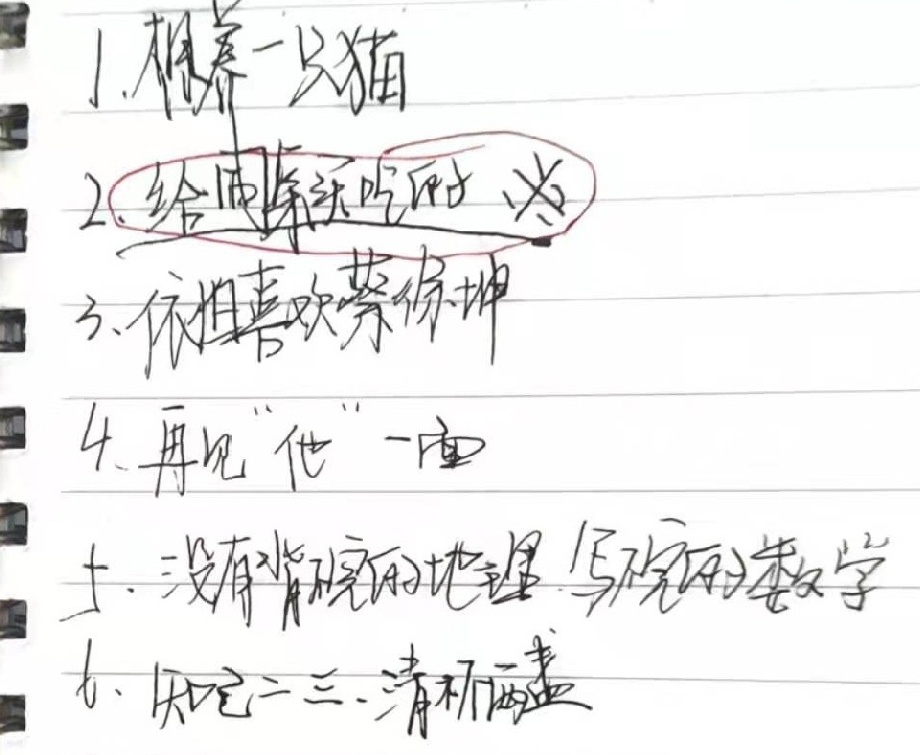 1. 想养一只猫
2. 给周陈沃吃的
3. 依旧喜欢蔡徐坤
4. 再见“他”一面
5. 没有背完的地理 写完的数学
6. 知己二三、清酒两盏